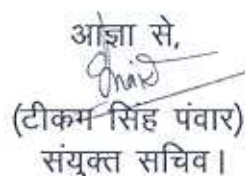 आज्ञा से,
(टीकम सिंह पंवार)
संयुक्त सचिव।